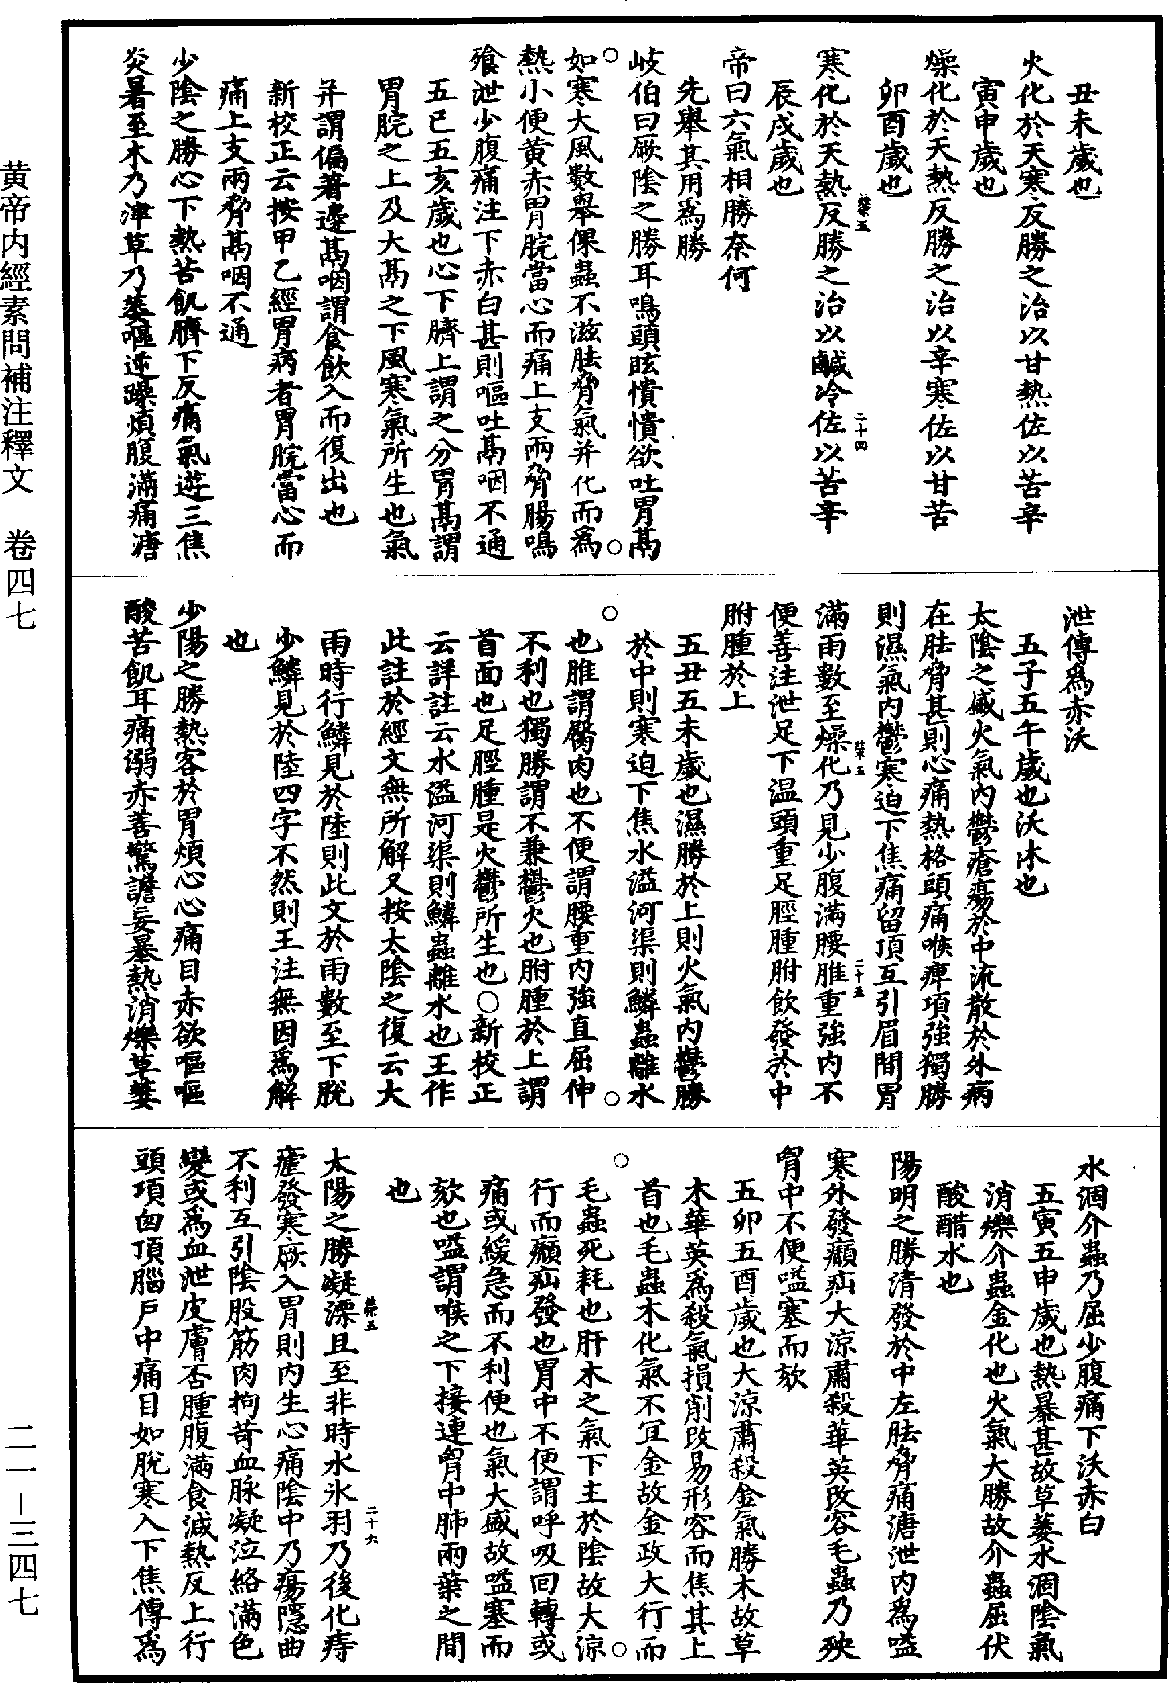 丑未歲也
火化於天寒反勝之治以甘熱佐以苦辛
寅申歲也
燥化於天熱反勝之治以辛寒佐以甘苦
卯酉歲也
寒化於天熱反勝之治以鹹冷佐以苦辛
辰戌歲也
帝曰六氣相勝奈何
先舉其用爲勝
岐伯曰厥陰之勝耳鳴頭眩憒憒欲吐胃鬲
如寒大風數舉倮蟲不滋胠脅氣并化而爲
熱小便黃赤胃脘當心而痛上支兩脅腸鳴
飱泄少腹痛注下赤白甚則嘔吐鬲咽不通
五巳五亥歲也心下臍上謂之分胃鬲謂
胃脘之上及大鬲之下風寒氣所生也氣
并謂偏著邊鬲咽謂食飲入而復出也
新校正云按甲乙經胃病者胃脘當心而
痛上支兩脅鬲咽不通
少陰之勝心下熱苦飢臍下反痛氣遊三焦
炎暑至木乃津草乃萎嘔逆躁煩腹滿痛溏
泄傳爲赤沃
五子五午歲也沃沫也
太陰之盛火氣內鬱瘡瘍於中流散於外病
在胠脅甚則心痛熱格頭痛喉痺項強獨勝
則濕氣內鬱寒迫下焦痛留頂互引眉間胃
滿雨數至燥化乃見少腹滿腰脽重強內不
便善注泄足下溫頭重足脛腫胕飲發於中
胕腫於上
五丑五未歲也濕勝於上則火氣內鬱勝
於中則寒迫下焦水溢河渠則鱗蟲離水
也脽謂臀肉也不便謂腰重內強直屈伸
不利也獨勝謂不兼鬱火也胕腫於上謂
首面也足脛腫是火鬱所生也○新校正
云詳註云水溢河渠則鱗蟲離水也王作
此註於經文無所解又按太陰之復云大
雨時行鱗見於陸則此文於雨數至下脫
少鱗見於陸四字不然則王注無因爲解
也
少陽之勝熱客於胃煩心心痛目赤欲嘔嘔
酸苦飢耳痛溺赤善驚譫妄暴熱消爍草萎
水涸介蟲乃屈少腹痛下沃赤白
五寅五申歲也熱暴甚故草萎水涸陰氣
消爍介蟲金化也火氣大勝故介蟲屈伏
酸醋水也
陽明之勝清發於中左胠脅痛溏泄內爲嗌
寒外發㿗疝大涼肅殺華英改容毛蟲乃殃
胷中不便嗌塞而欬
五卯五酉歲也大涼肅殺金氣勝木故草
木華英爲殺氣損削改易形容而焦其上
首也毛蟲木化氣不宜金故金政大行而
毛蟲死耗也肝木之氣下主於陰故大涼
行而㿗疝發也胃中不便謂呼吸回轉或
痛或緩急而不利便也氣大盛故嗌塞而
欬也嗌謂喉之下接連胷中肺兩葉之間
也
太陽之勝凝凓且至非時水氷羽乃後化痔
瘧發寒厥入胃則內生心痛陰中乃瘍隱曲
不利互引陰股筋肉拘苛血脉凝泣絡滿色
變或爲血泄皮膚否腫腹滿食減熱反上行
頭項囟頂腦戶中痛目如脫寒入下焦傳爲
黃帝內經素問補注釋文　卷四七
二一－三四七